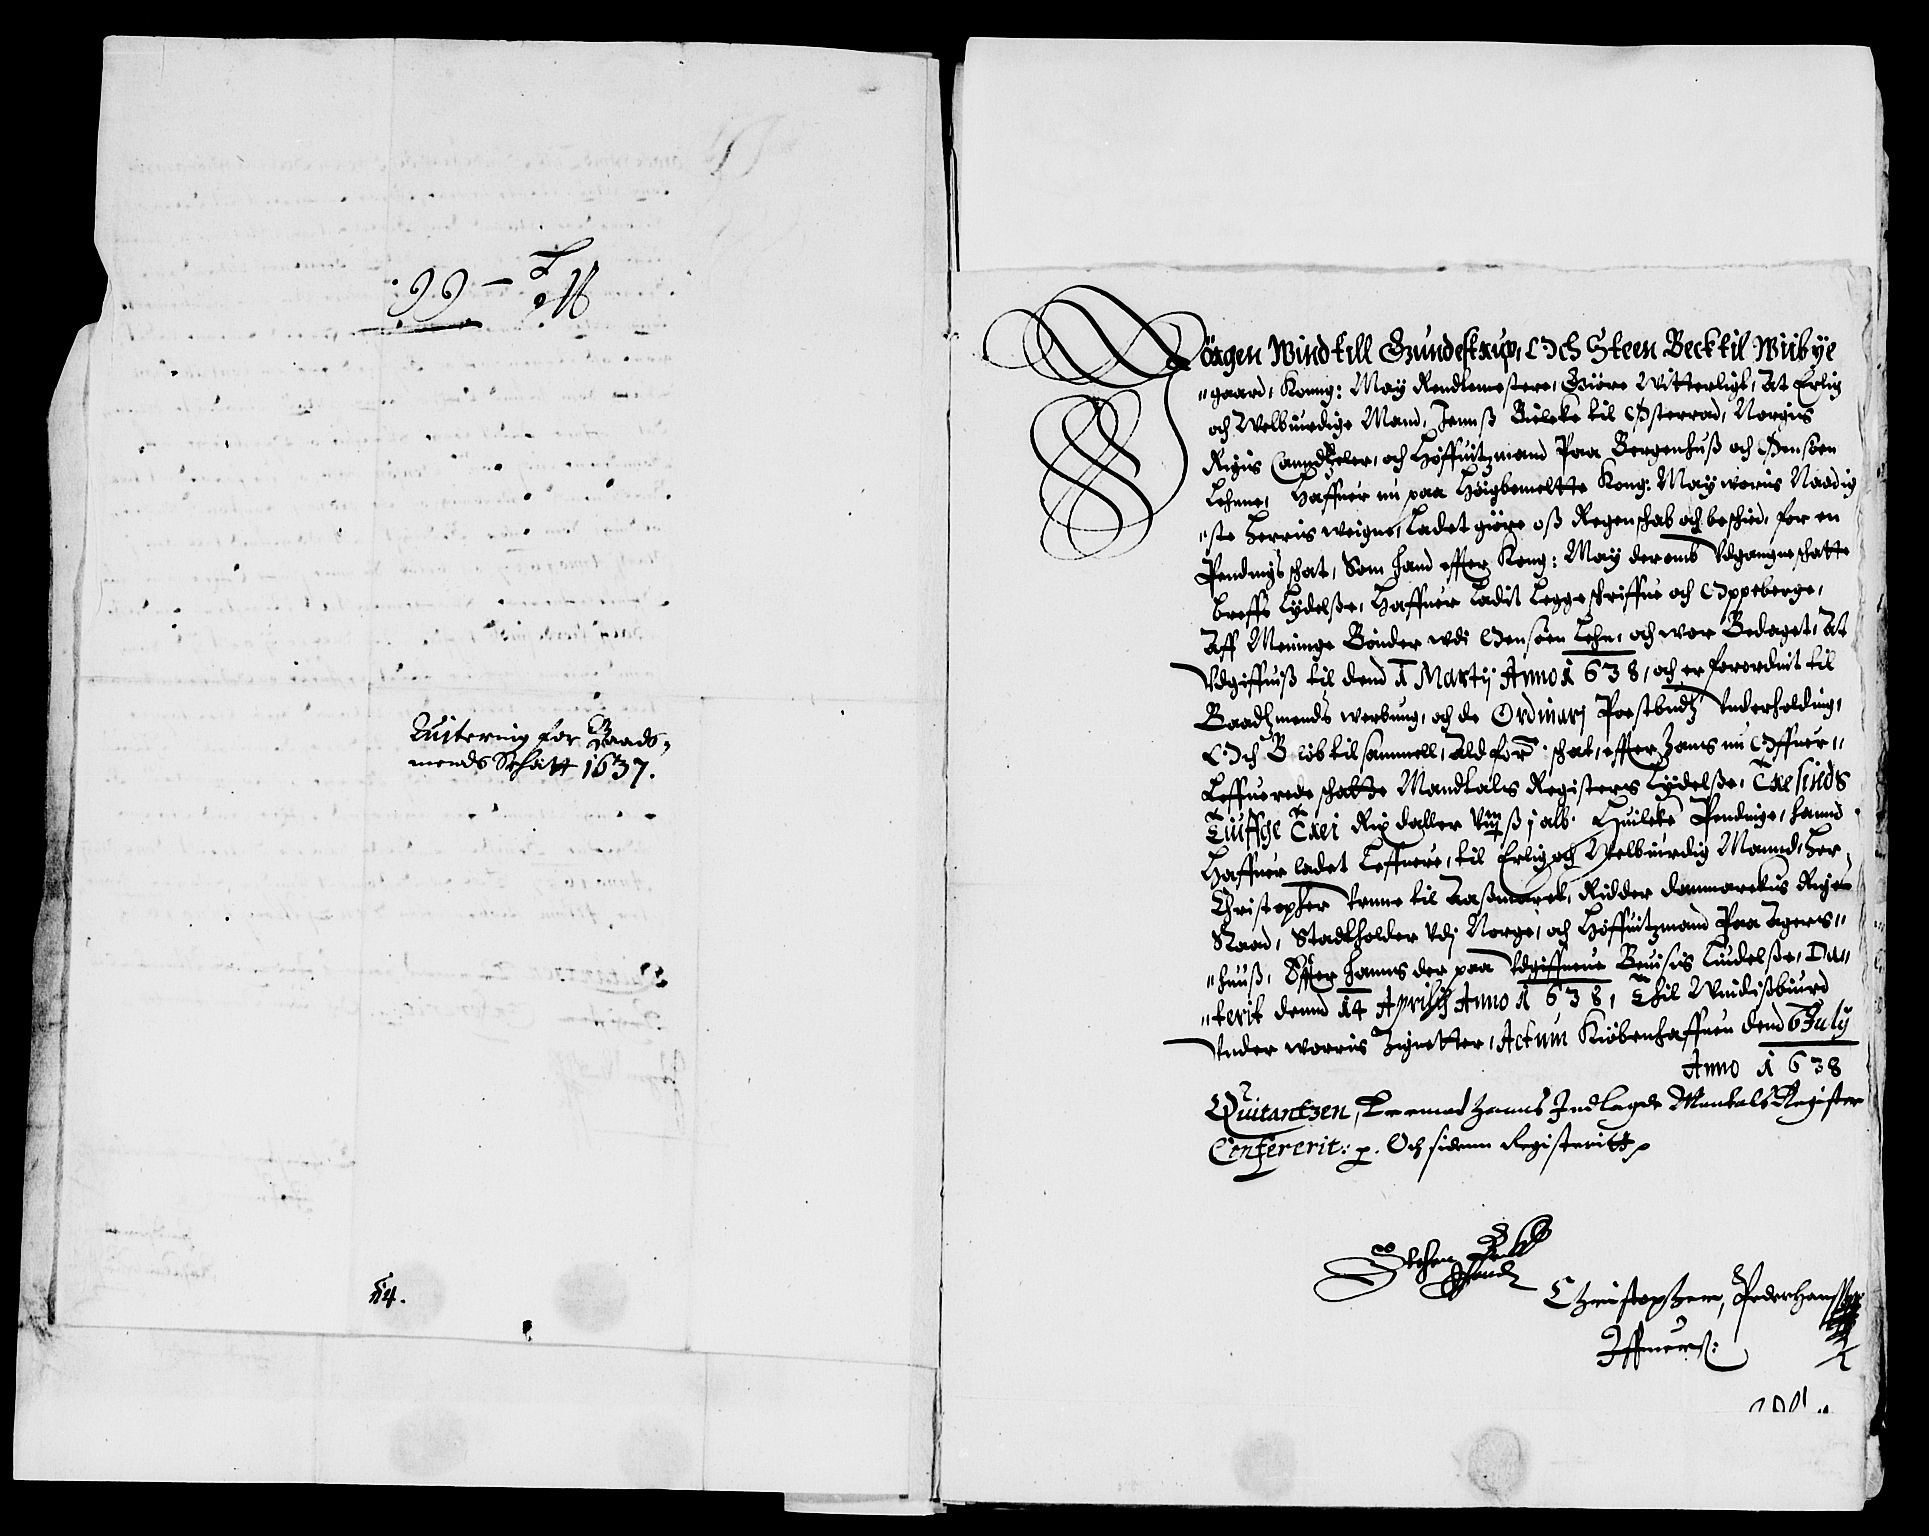 :99 –
Quitering for Baads-
mends Schatt 1637.
14.
Jörgen Wind till Gundestrup, Och Steen Beck til Wiibye
"gaard, Konng: May Rendtemestere, Giöre Witterligt, At Erlig
och Welbiurdige Mand, Jenns Bielcke til Østerrad, Norgis
Rigis Canndtzeler, och Höffuitzmand Paa Bergenhuss och Stensöen
Lehne, Haffuer nu paa Höigbemeltte Kong: May woris Naadig
"ste Herris weigne, Ladet giöre oss Regenschab och beskied, for en
Pendings schat, Som hand effter Kong: May deromb Udgangne schatte
breffs Lydelsse, Haffuer Ladit Legge schriffue och Oppeberge,
Aff Meninge Bönder wdi Stensöen Lehn, och war Bedaget, At
Udgiffuis til dend 1 Martij Anno 1638, och er forordnit til
Baadtzmends werbung, och de Ordinarj Poestbudtz Underholding,
Och Belöb til sammell, Ald for: schat, effter Hans nu Offuer"
Leffuerede schatte Mandtals Registers Lydelsse, Tresinds
Tiuffge Trei Rix daller VIII ß j alb. Huilcke Pendinge, hannd
Haffuer ladet Leffuere, til Erlig och Welbiurdig Mannd, Her
Christopher Urne til Aasmarck, Ridder Danmarckis Riges
Raad, Stadtholder Udj Norge, och Höffuitzmand Paa Agers"
"huuss, Effter hanns der paa Udgiffuene Beuisis Liudelsse, Da"
"terit dennd 14 Aprilis Anno 1638, Thil Windissbiurd
Under worris Zignetter, Actum Kiöbenhaffuen dend 6 July
Anno 1638
Quitantzen, Er med Hanns Indlagde Mantals Register
Conffererit: p. Och sidenn Registeritt p
Stehen Beck
Christophersen, Peder Hanssen